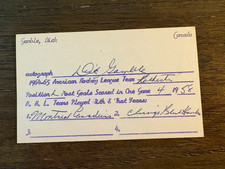 Gamble, Dick Canada
autograph Dick Gamble
1964-65 American Hockey League Team Rochester
Position L. Most Goals Scored in One Game 4 1958
N. H. L. Teams Played With & What Years
1. Montreal Canadiens 2. Chicago Black Hawks
3. 4.